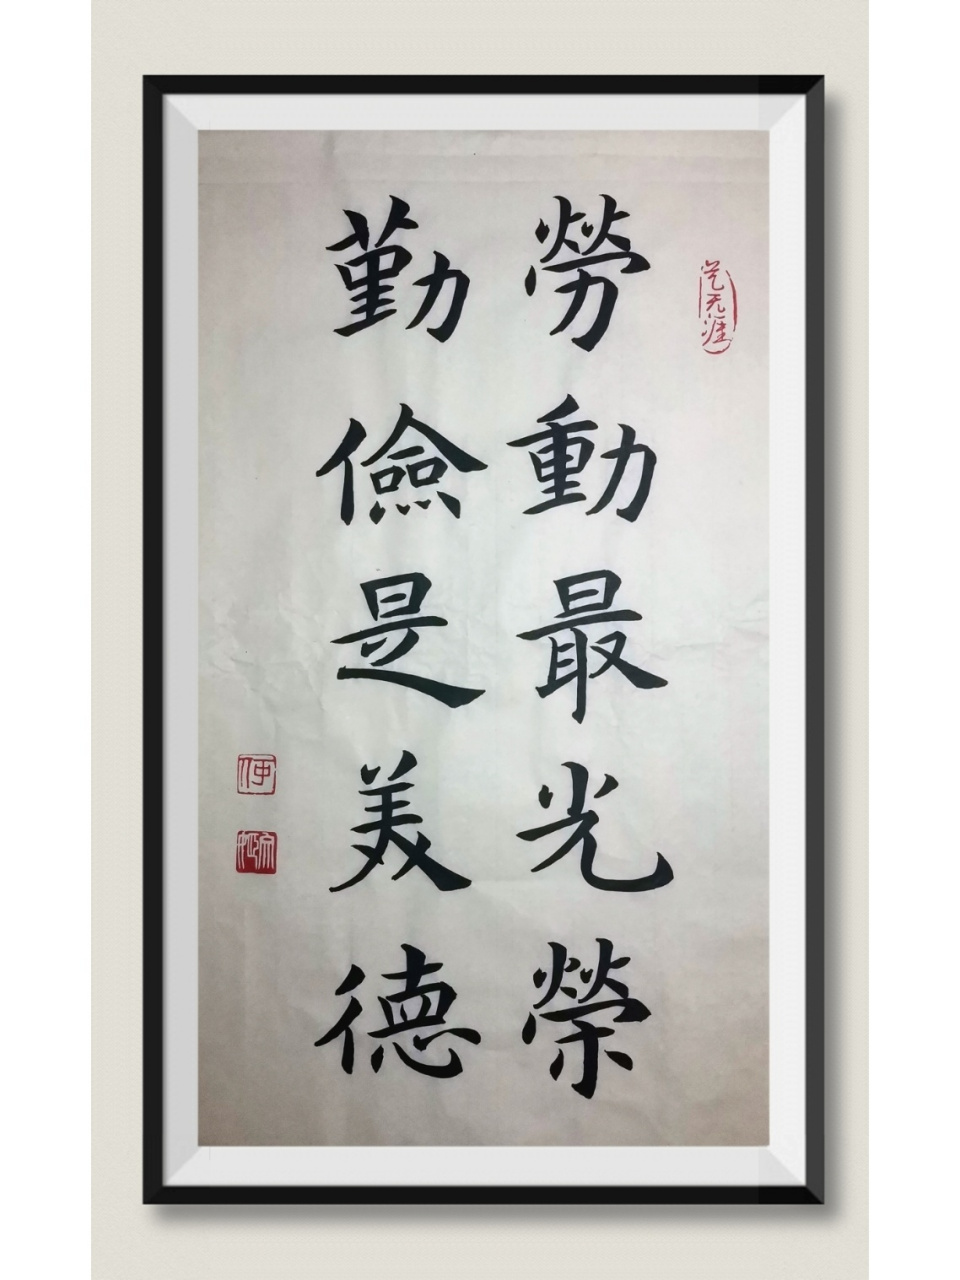 勞動最光榮
勤儉是美德
艺无涯